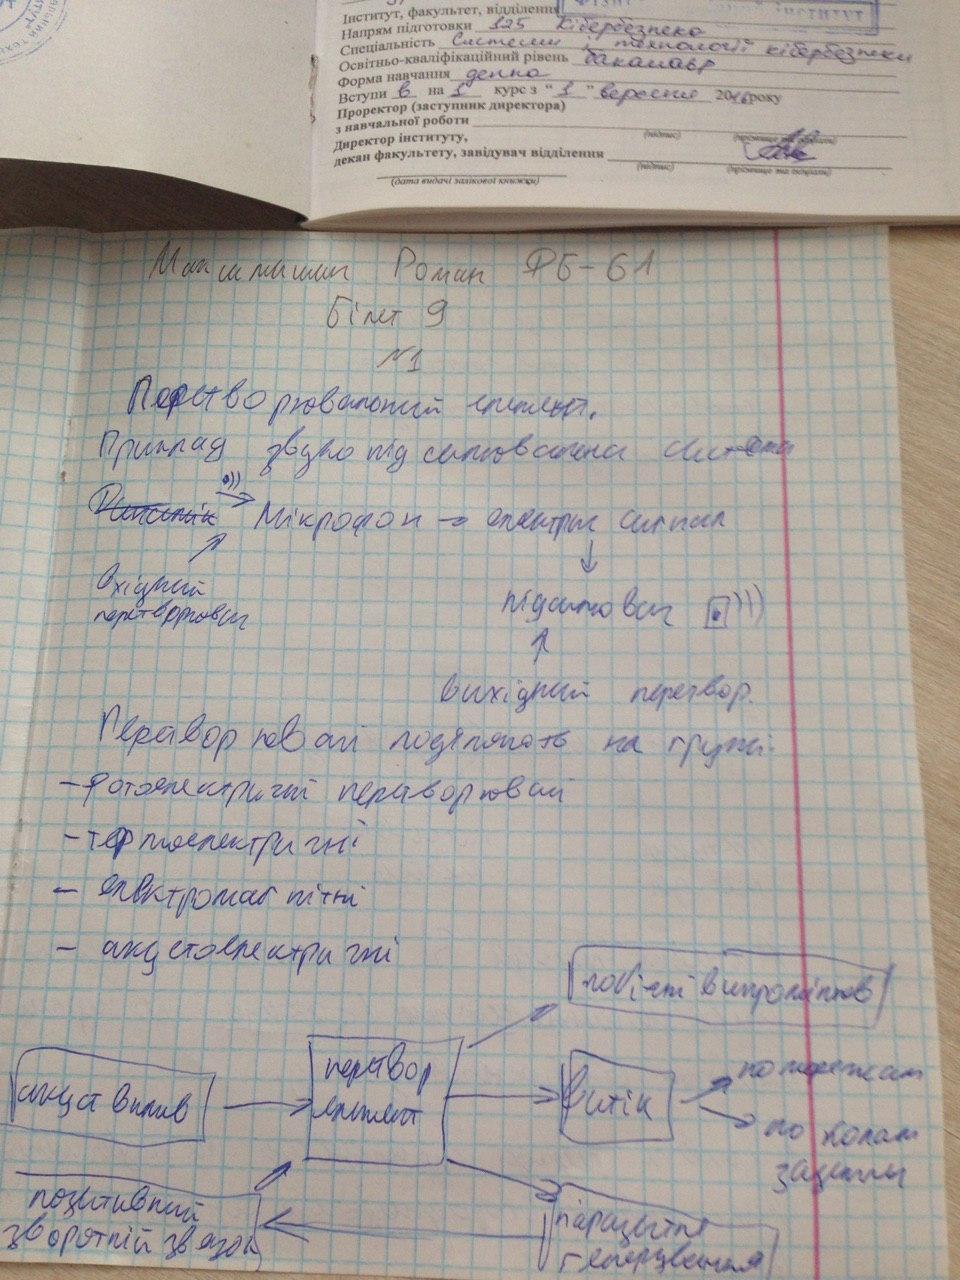 Інститут, факультет, відділення
інститут
Напрям підготовки 125 Кібербезпека
Спеціальність Системи технології кібербезпеки
Освітньо-кваліфікаційний рівень бакалавр
Форма навчання денна
Вступи в на 1 курс з "1" вересня 2016 року
Проректор (заступник директора)
з навчальної роботи
(підпис)
Директор інституту,
декан факультету, завідувач відділення
(підпис) (прізвище та ініціали)
(дата видачі залікової книжки)
Роман ФБ-61
Білет 9
№1
Перетворювальний елемент.
Приклад звукопідсилювальна система
Мікрофон → електрич сигнал
вхідний
перетворювач
підсилювач
вихідний перетвор.
Перетворювачі поділяють на групи:
- фотоелектричні перетворювачі
- термоелектричні
- електромагнітні
- акустоелектричні
побічні випромінюв
акуст вплив
перетвор
елемент
витік
по мережам
по колам
позитивний
зворотній звязок
паразитне
генерування